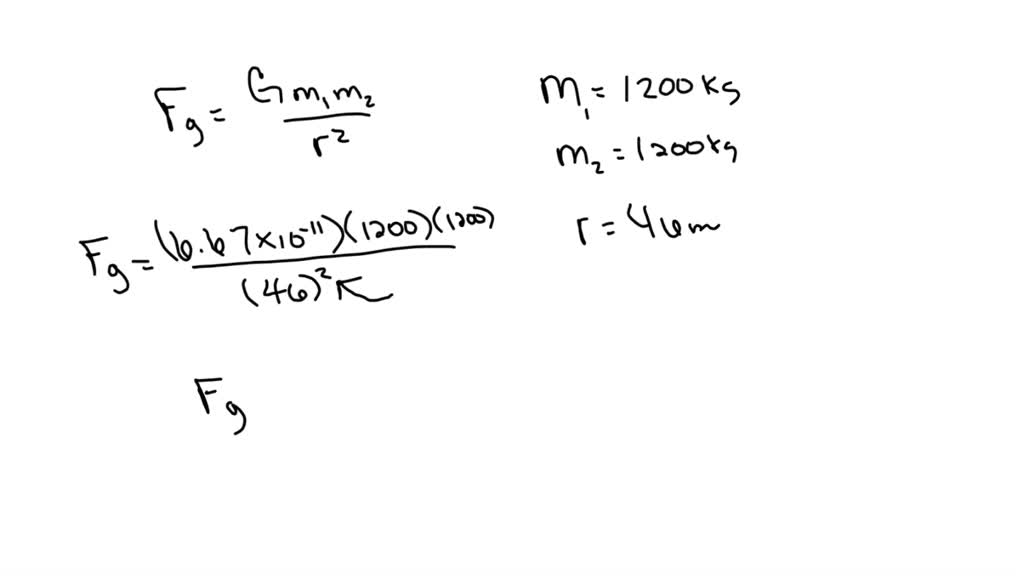 Fg = Gm₁m₂ / r²
m₁ = 1200 kg
m₂ = 1200 kg
r = 46 m
Fg = (6.67×10⁻¹¹)(1200)(1200) / (46)²
Fg